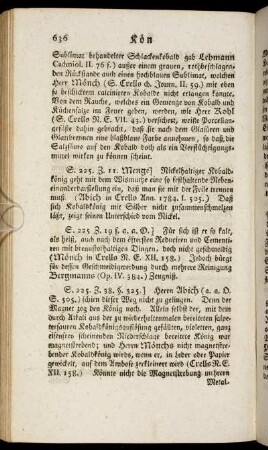 636 Kön
Sublimat behandelter Schlackenkobald gab Lehmann
Cadmiol. II. 76 f.) außer einem grauen,
den Rückstande auch einen hochblauen Sublimat, welchen
Herr Mönch (S. Crells ch. Journ. II. 59.) mit eben
so beschicktem calcinirten Kobalde nicht erlangen könnte.
Von dem Rauche, welches ein Gemenge von Kobald und
Küchensalze im Feuer geben, werden, wie Herr Kohl
(S. Crells N. E. VII. 43.) versichert, weiße Porcellan-
gefäße dahin gebracht, daß sie nach dem Glasiren und
Glattbrennen eine blaßblaue Farbe annehmen, so daß die
Salzsäure auf den Kobald doch als ein Verflüchtigungs-
mittel wirken zu können scheint.
S. 225. Z. 11. Menge] Nickelhaltiger Kobald-
könig geht mit dem Wismuthe eine so festhaltende Neben-
einanderdarstellung ein, daß man sie mit der Feile trennen
muß. (Abich in Crells Ann. 1784. I. 505.) Daß
sich Kobaldkönig mit Silber nicht zusammenschmelzen
läßt, zeigt seinen Unterschied vom Nickel.
S. 225. Z. 19 f. a. a. O.] Für sich ist er so kalt,
als heiß, auch nach dem öftresten Reduciren und Cementi-
ren mit brennstoffhaltigen Dingen, doch nicht geschmeidig
(Mönch in Crells N. E. XII. 158.) Jedoch bürgt für
dessen Geschmeidigwerdung durch mehrere Reinigung
Bergmanns (Op. IV. 382.) Zeugniß.
S. 225. Z. 38. §. 525.] Herrn Abich (a. a. O.
S. 505.) schien dieser Weg nicht zu gelingen. Denn der
Magnet zog den König noch. Allein selbst der, mit dem
durch Alkali aus der zu wiederholtenmalen bereiteten salpe-
tersauren Kobaldkönigsauflösung gefällten, violetten, ganz
eisenfrey scheinenden Niederschlage bereitete König war
magnetstrebend; und Herrn Mönchs nicht magnetstre-
bender Kobaldkönig wirds, wenn er, in leder oder Papier
gewickelt, auf dem Ambose zerkleinert wird (Crells N. E.
XII. 158.) Könnte nicht die Magnetstrebung mehreren
Metal-